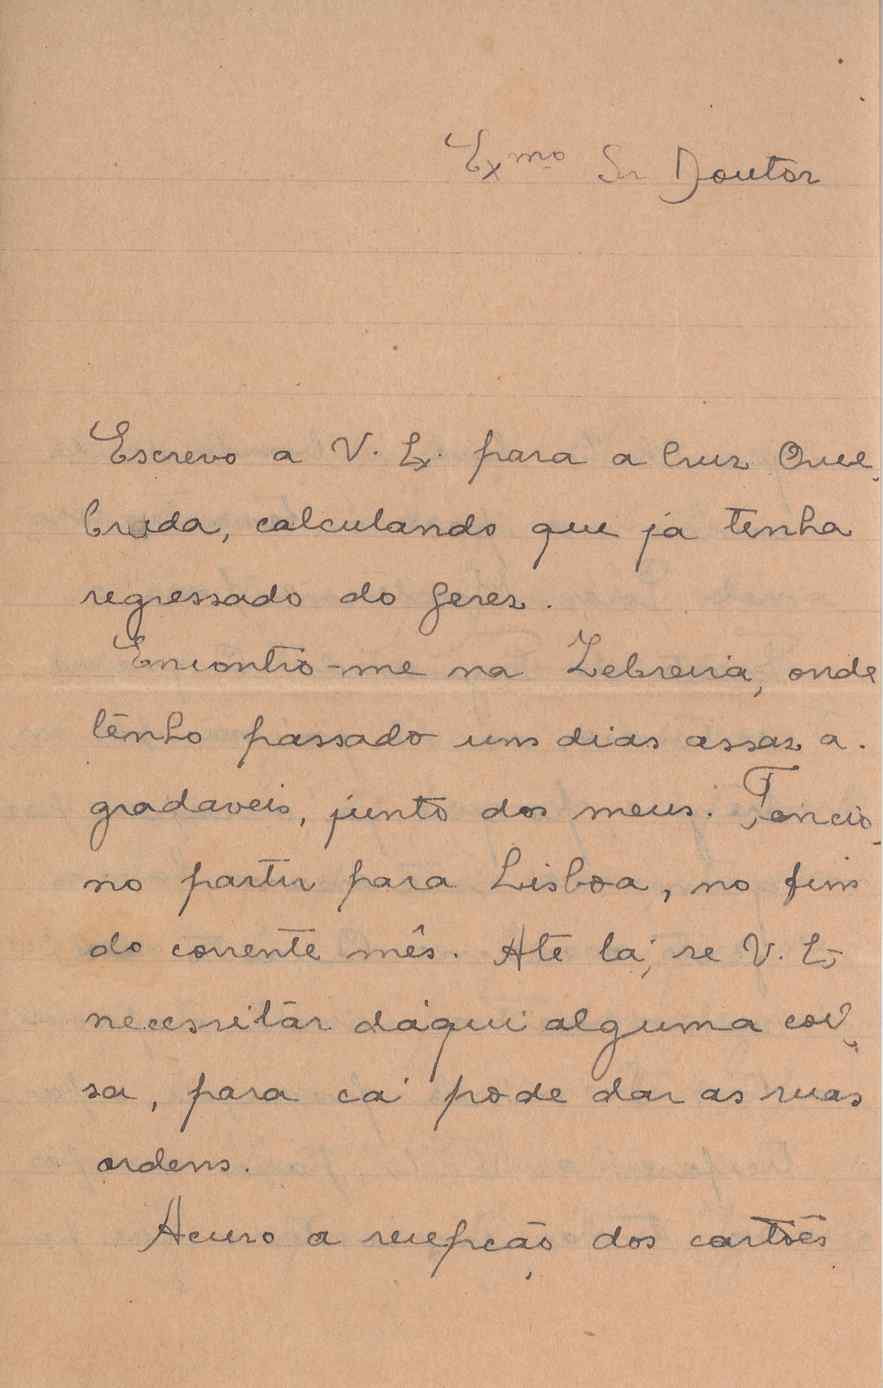 Exmo Sr Doutor
Escrevo a V. Ex. para a Cruz Que-
brada, calculando que já tenha
regressado do Gerez.
Encontro-me na Zebreira, onde
tenho passado uns dias assaz a-
gradaveis, junto dos meus. Tencio-
no partir para Lisboa, no fim
do corrente mês. Até lá, se V. Ex
necessitar dáqui alguma coi-
sa, para cá pode dar as suas
ordens.
Acuso a recepção dos cartões